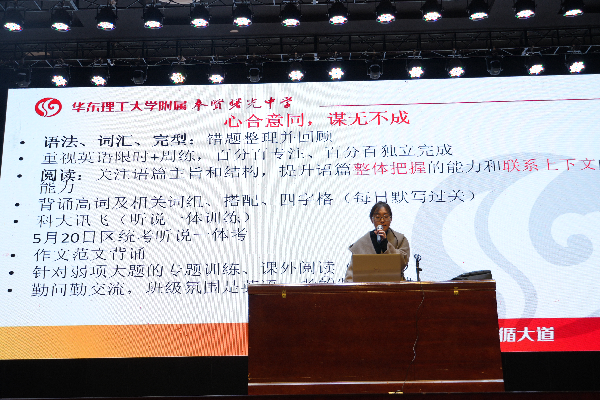 华东理工大学附属奉贤曙光中学
心合意同，谋无不成
• 语法、词汇、完型：错题整理并回顾
• 重视英语限时+周练，百分百专注、百分百独立完成
• 阅读：关注语篇主旨和结构，提升语篇整体把握的能力和联系上下文
能力
• 背诵高词及相关词组、搭配、四字格（每日默写过关）
• 科大讯飞（听说一体训练）
5月20日区统考听说一体考
• 作文范文背诵
• 针对弱项大题的专题训练、课外阅读
• 勤问勤交流，班级氛围是
循大道